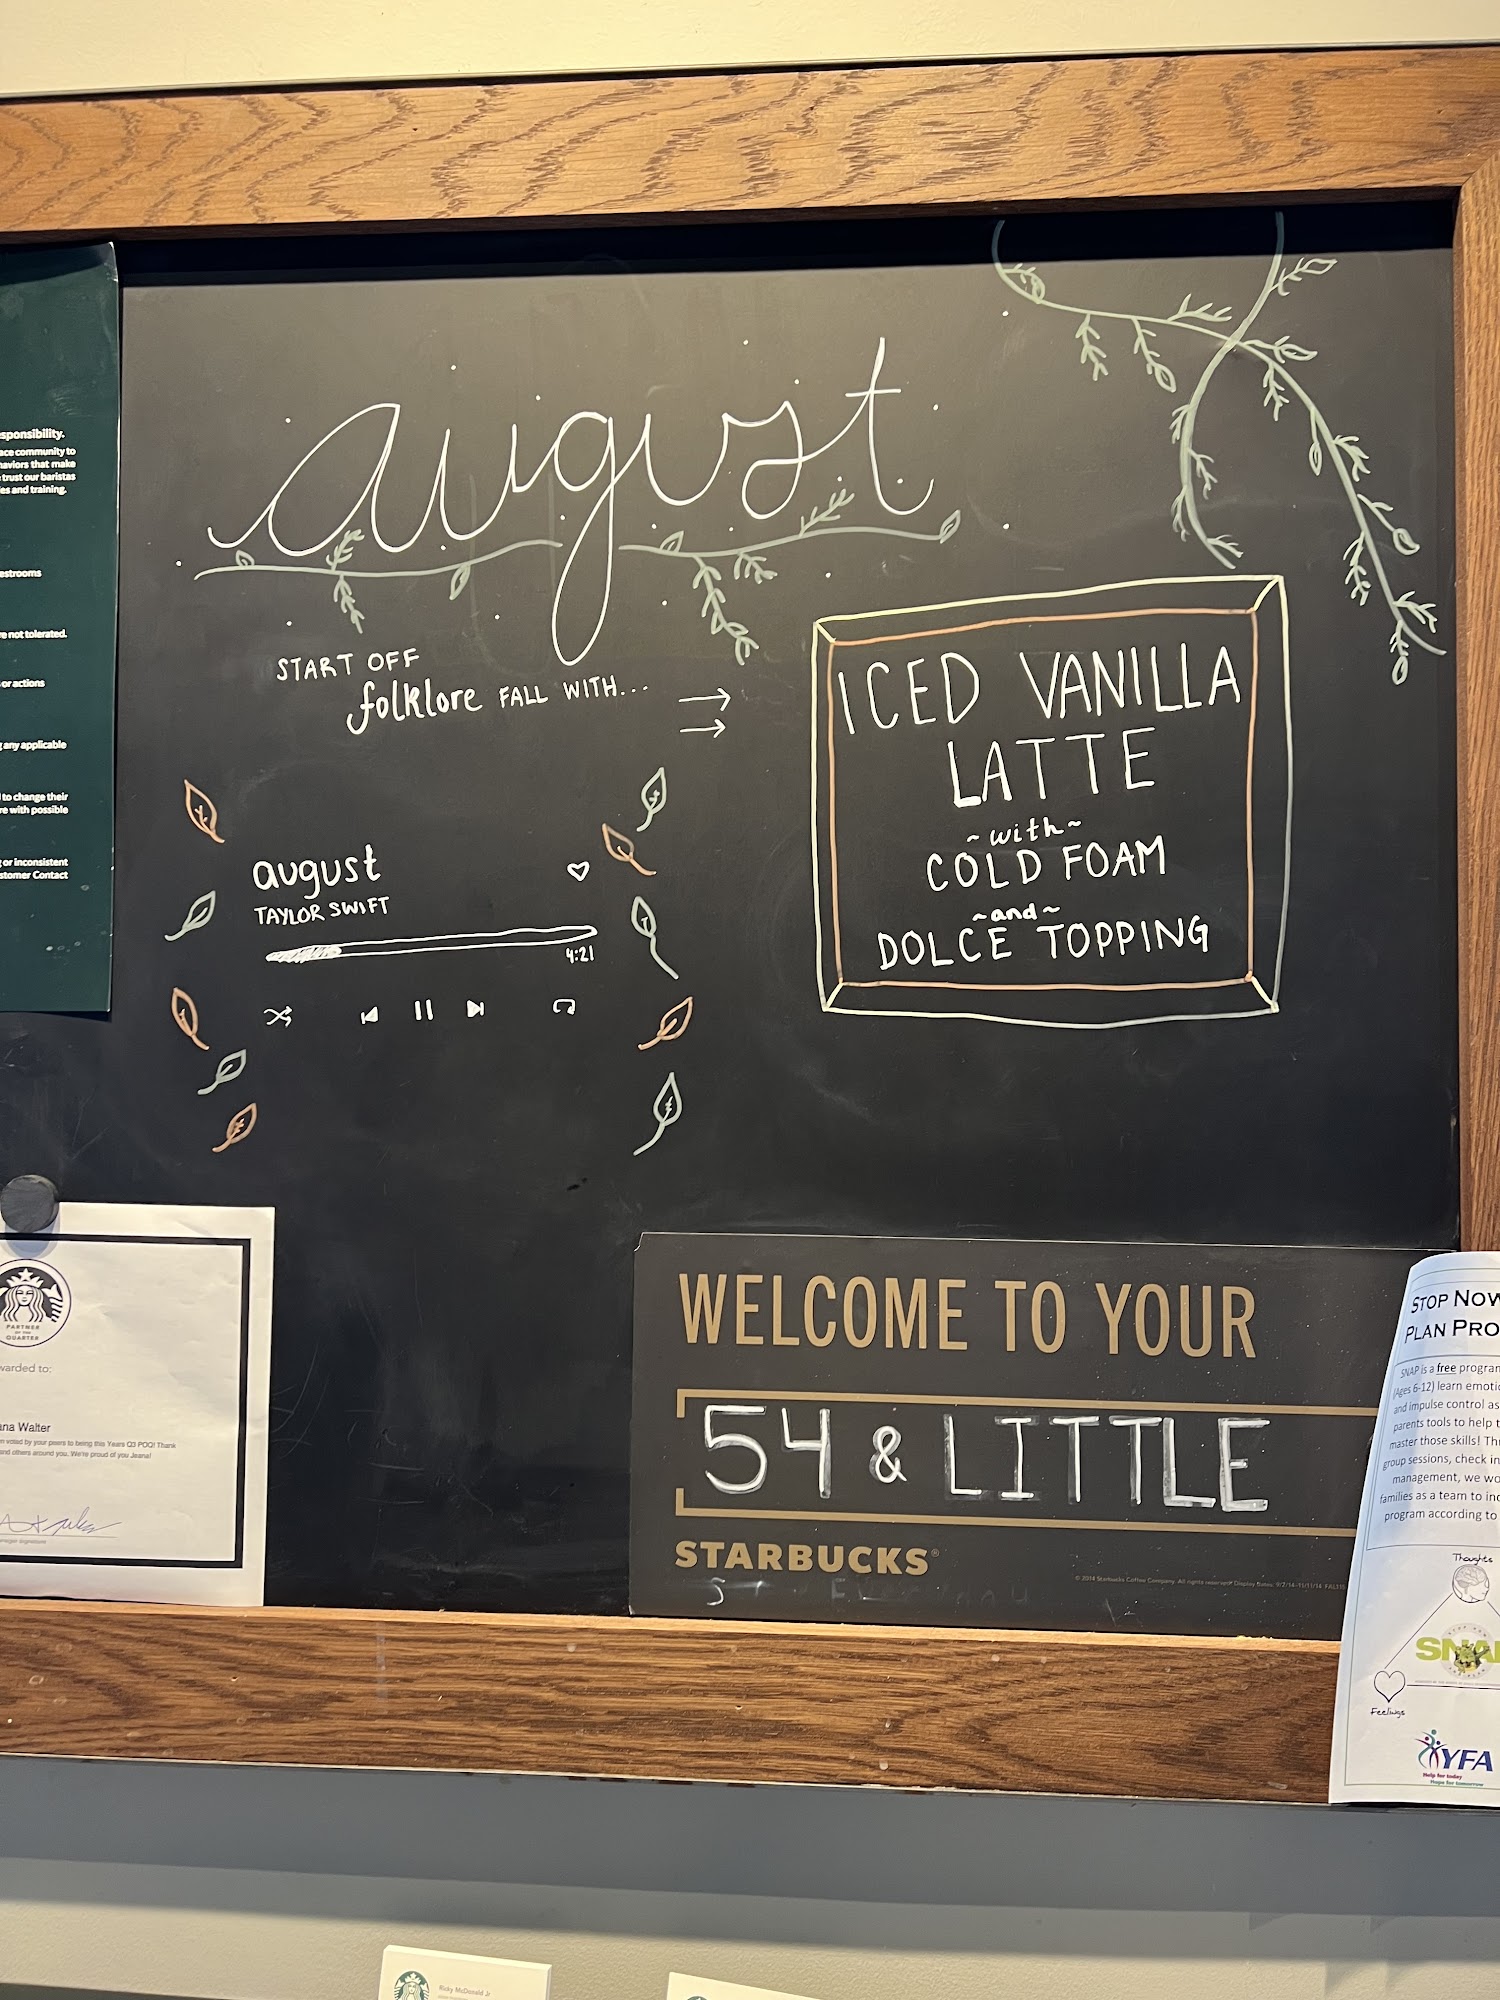 sponsibility.
ace community to
haviors that make
trust our baristas
es and training.
estrooms
re not tolerated.
or actions
any applicable
to change their
re with possible
or inconsistent
stomer Contact
august
START OFF
folklore FALL WITH...
august
TAYLOR SWIFT
4:21
ICED VANILLA
LATTE
~with~
COLD FOAM
~and~
DOLCE TOPPING
PARTNER
OF THE
QUARTER
warded to:
ana Walter
n voted by your peers to being this Years Q3 POQ! Thank
and others around you. We're proud of you Jeana!
WELCOME TO YOUR
54 & LITTLE
STARBUCKS®
© 2014 Starbucks Coffee Company. All rights reserved.
STOP NOW
PLAN PRO
SNAP is a free program
(Ages 6-12) learn emotio
and impulse control as
parents tools to help t
master those skills! Thr
group sessions, check in
management, we wo
families as a team to inc
program according to
Thoughts
SNA
Feelings
YFA
Help for today
Hope for tomorrow
Ricky McDonald Jr